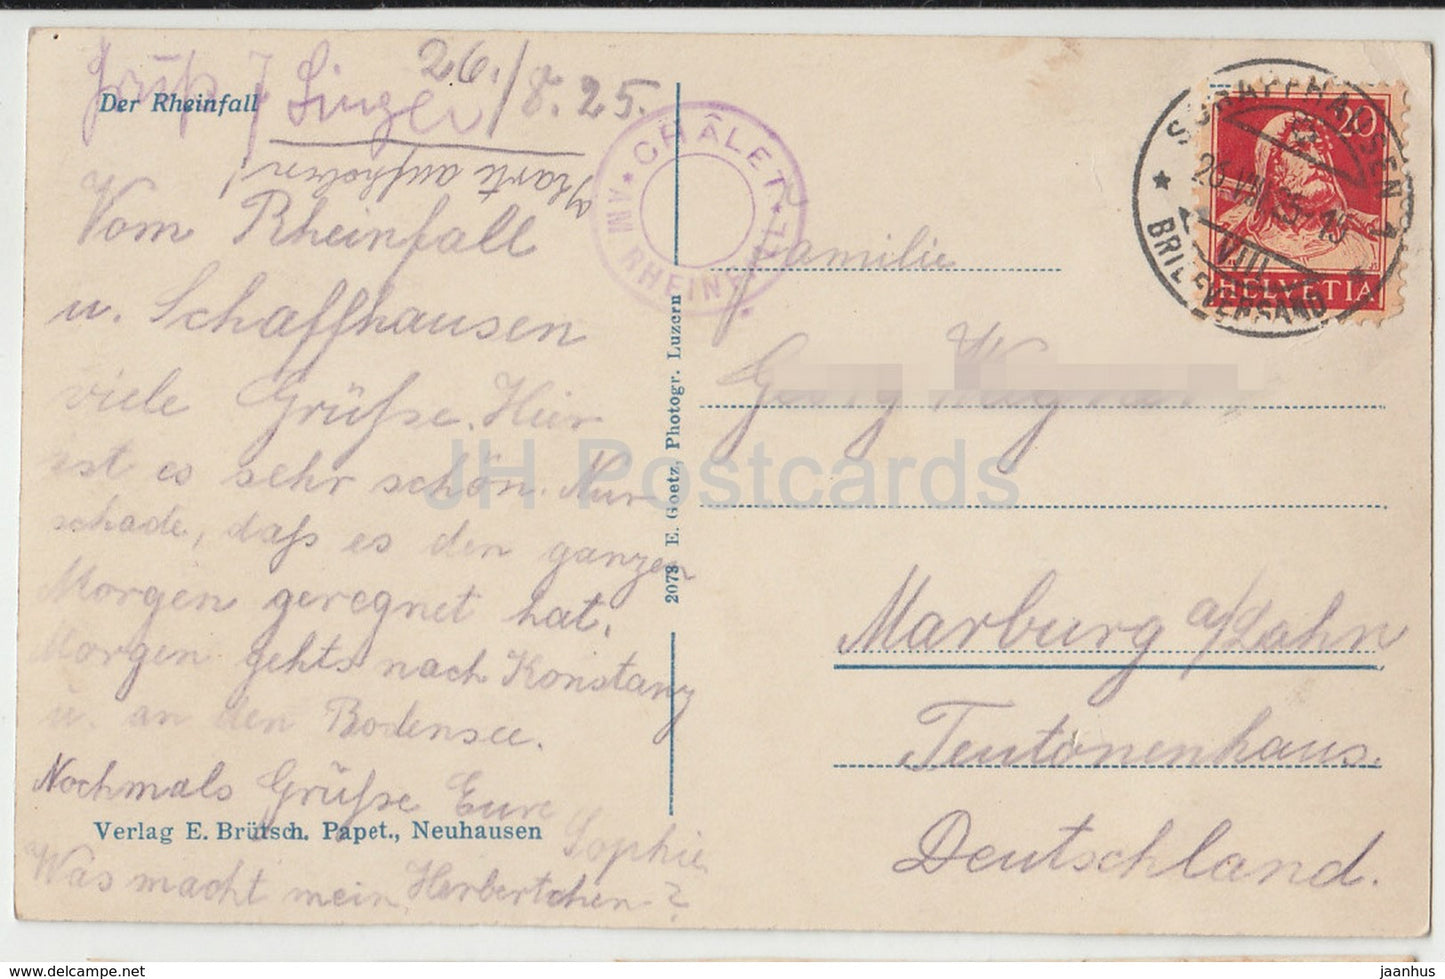 Gruß J Singer
26./8.25.
Der Rheinfall
Karte aufheben!
Vom Rheinfall
u. Schaffhausen
viele Grüße. Hier
ist es sehr schön. Nur
schade, daß es den ganzen
Morgen geregnet hat.
Morgen gehts nach Konstanz
u. an den Bodensee.
Nochmals Grüße Eure
Sophie
Verlag E. Brütsch. Papet., Neuhausen
Was macht mein Herbertchen?
2073 E. Goetz, Photogr. Luzern
CHÂLET
AM RHEINFALL
SCHAFFHAUSEN 1
26.VIII.25.-16
VIII
BRIEFVERSAND
20
HELVETIA
Familie
Georg
Marburg a/Lahn
Teutonenhaus.
Deutschland.
JH Postcards
www.delcampe.net
jaanhus